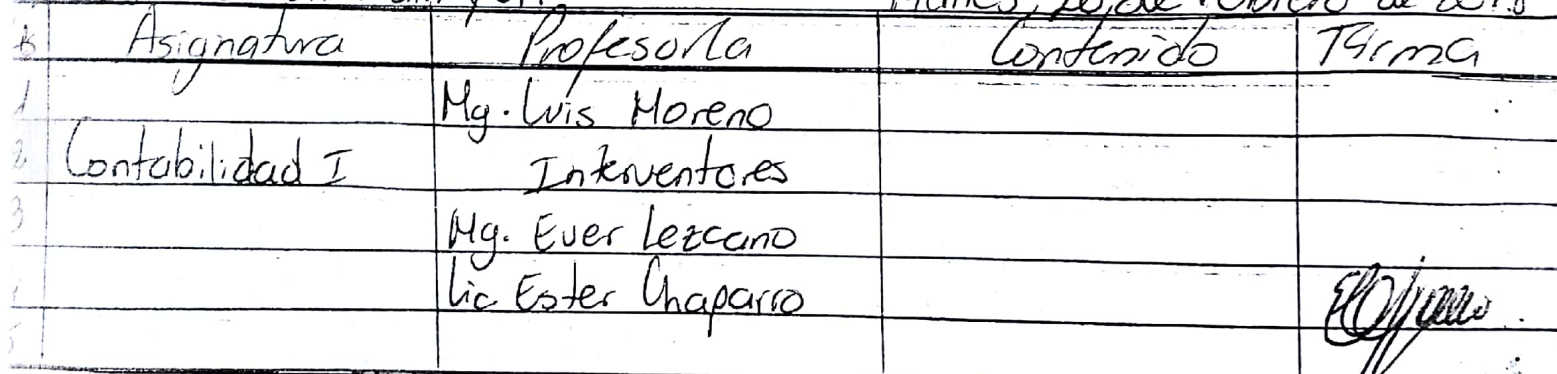 Martes, 20, de Febrero de
Asignatura Profesor/a Contenido Firma
1 Mg. Luis Moreno
2 Contabilidad I Interventores
3 Mg. Ever Lezcano
4 Lic Ester Chaparro
5